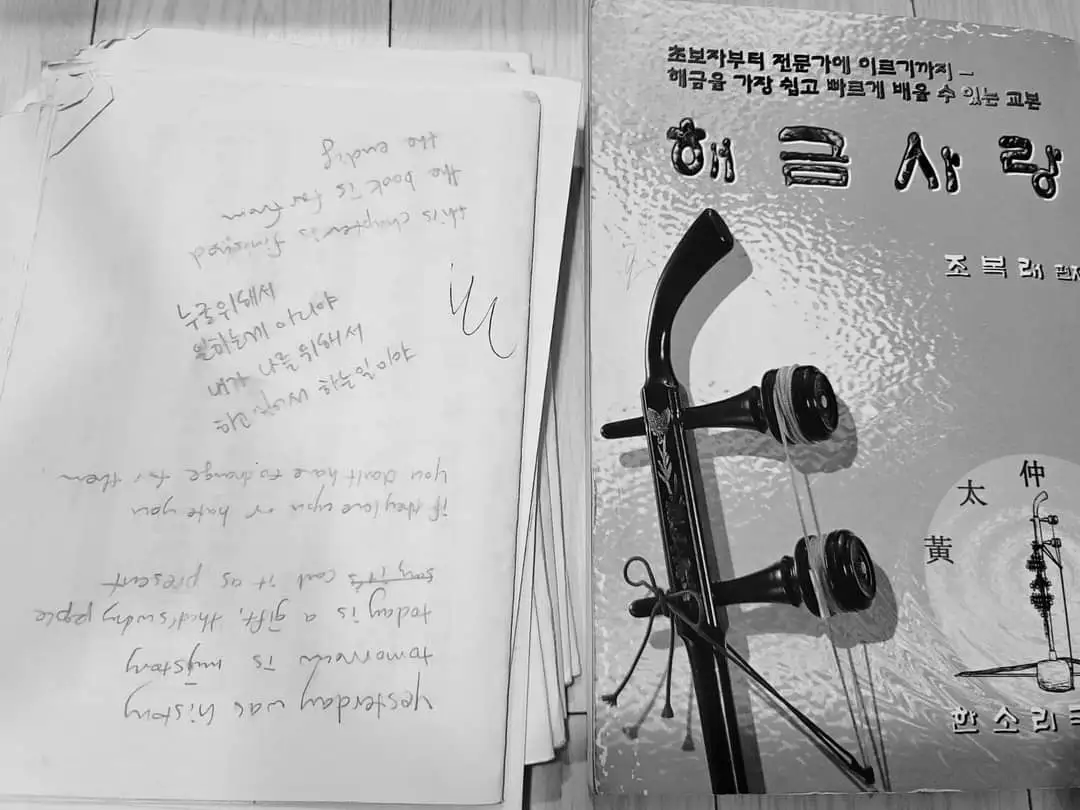 yesterday was history
tomorrow is mystory
today is a gift, that's why people
say it's call it as present
if they love you or hate you
you don't have to change for them
누굴위해서
일하는게 아니야
내가 나를 위해서
하고싶어서 하는일이야
this chapter is finished
the book is far from
the endig
초보자부터 전문가에 이르기까지 –
해금을 가장 쉽고 빠르게 배울 수 있는 교본
해금사랑
조복래 편저
仲
太
黃
한소리